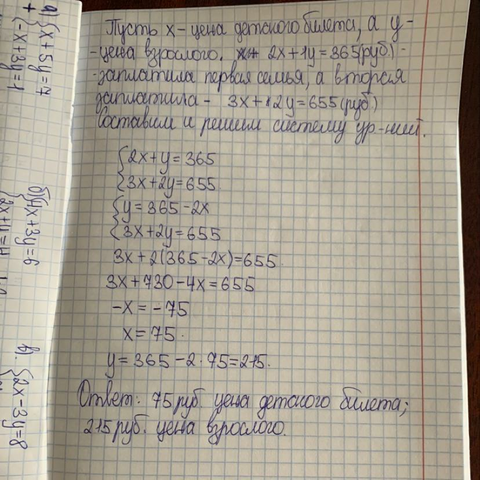 Пусть х - цена детского билета, а у -
- цена взрослого. 2х+1у=365(руб) -
- заплатила первая семья, а вторая
заплатила - 3х+2у=655(руб)
Составим и решим систему ур-ний.
{2х+у=365
{3х+2у=655
{у=365-2х
{3х+2у=655
3х+2(365-2х)=655
3х+730-4х=655
-х=-75
х=75.
у=365-2·75=215.
Ответ: 75 руб. цена детского билета;
215 руб. цена взрослого.
а) {х+5у=7
+ {-х+3у=1
б) {4х+3у=6
{2х+у=4
в). {2х-3у=8